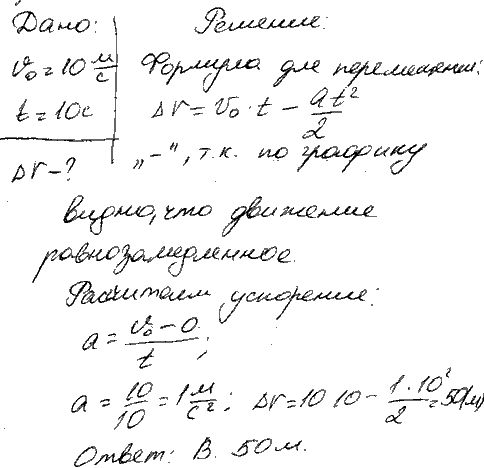 Дано: Решение:
v₀ = 10 м/с Формула для перемещения:
t = 10с Δr = v₀ · t − at²/2
Δr − ? „−“, т.к. по графику
видно, что движение
равнозамедленное.
Расчитаем ускорение:
a = (v₀ − 0)/t ;
a = 10/10 = 1 м/с² ; Δr = 10 10 − (1 · 10²)/2 = 50(м)
Ответ: В. 50 м.